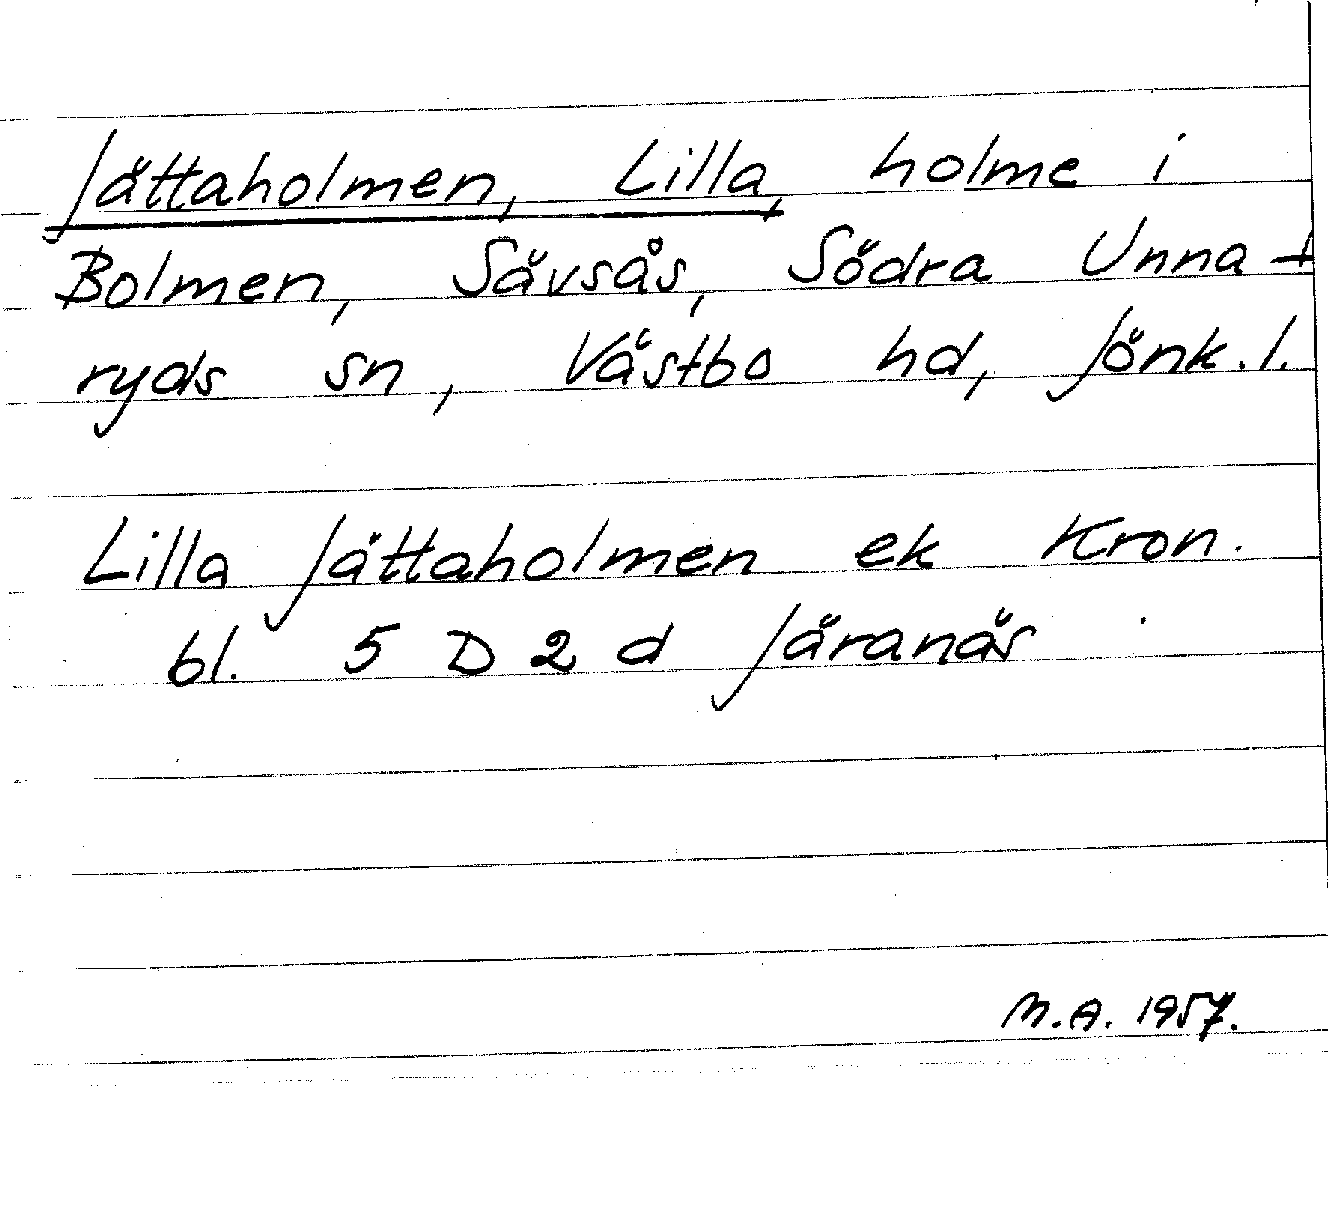 Jättaholmen, Lilla, holme i
Bolmen, Sävsås, Södra Unna-
ryds sn, Västbo hd, Jönk.l.
Lilla Jättaholmen ek Kron.
bl. 5 D 2 d Järanäs
M.A. 1957.